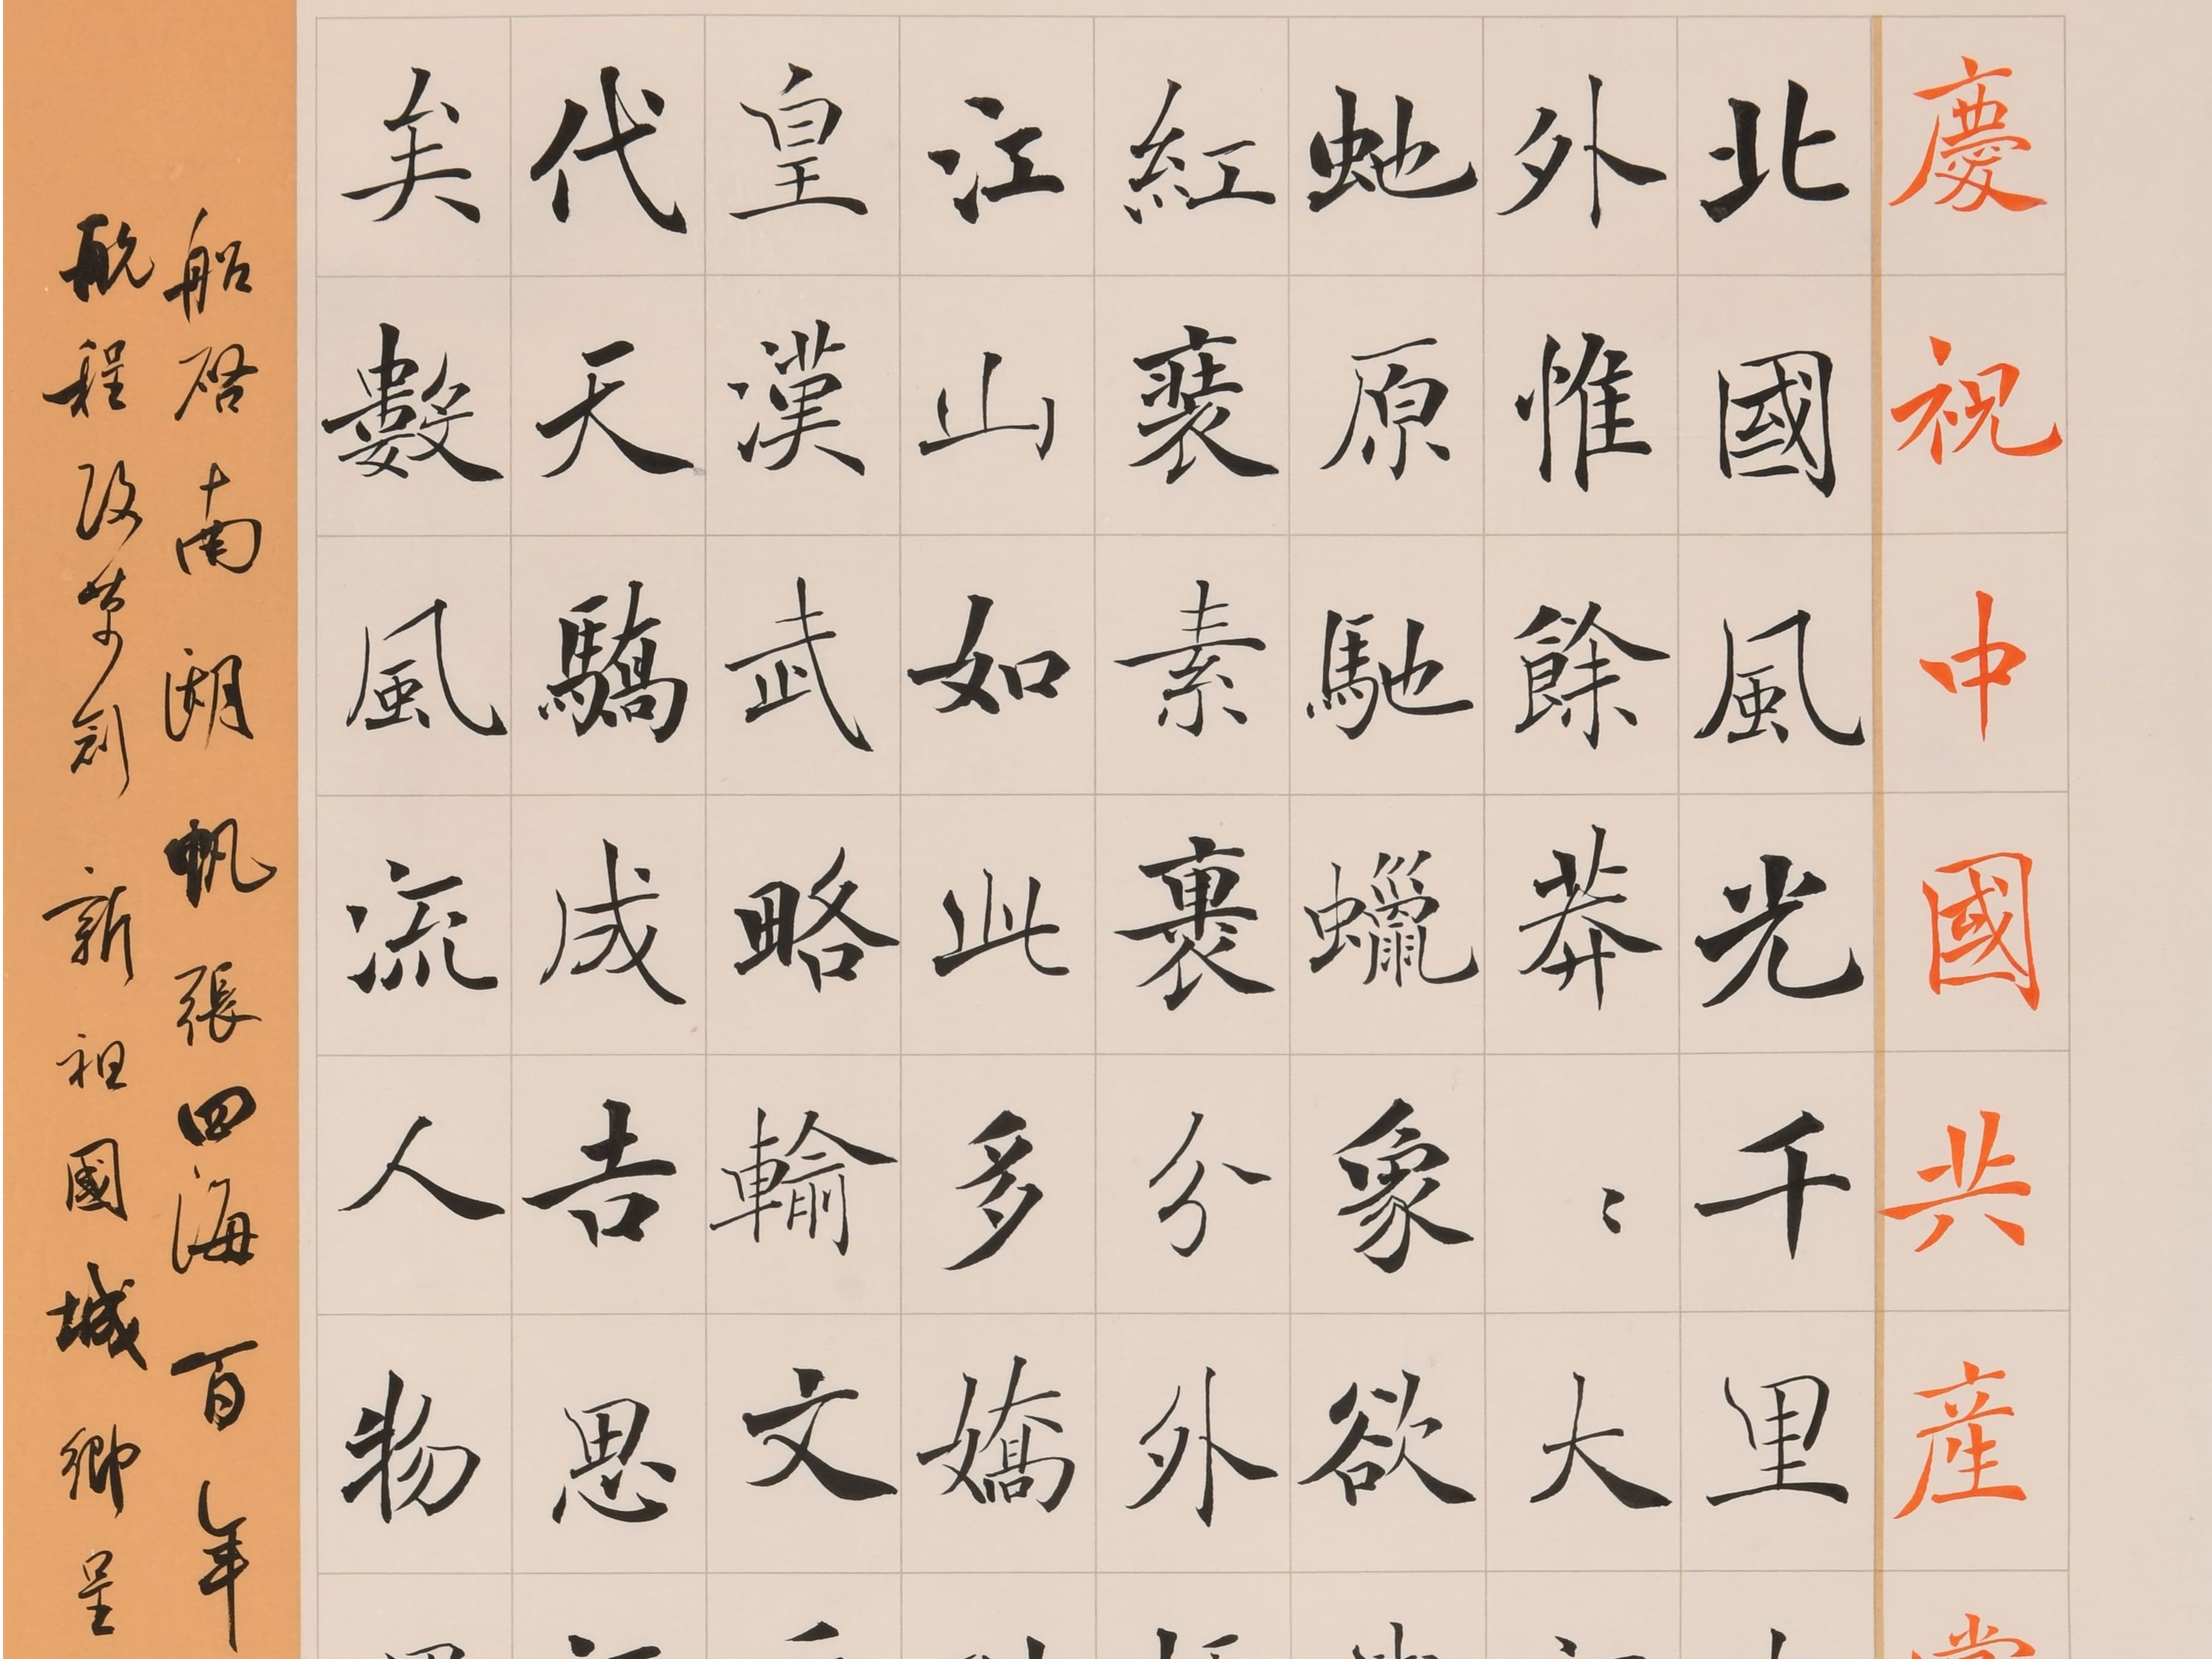 慶祝中國共産
北國風光千里
外惟餘莽〻大
虵原馳蠟象欲
紅裝素裹分外
江山如此多嬌
皇漢武略輸文
代天驕成吉思
矣數風流人物
船啓南湖帆張四海百年
航程改革創新祖國城鄉呈